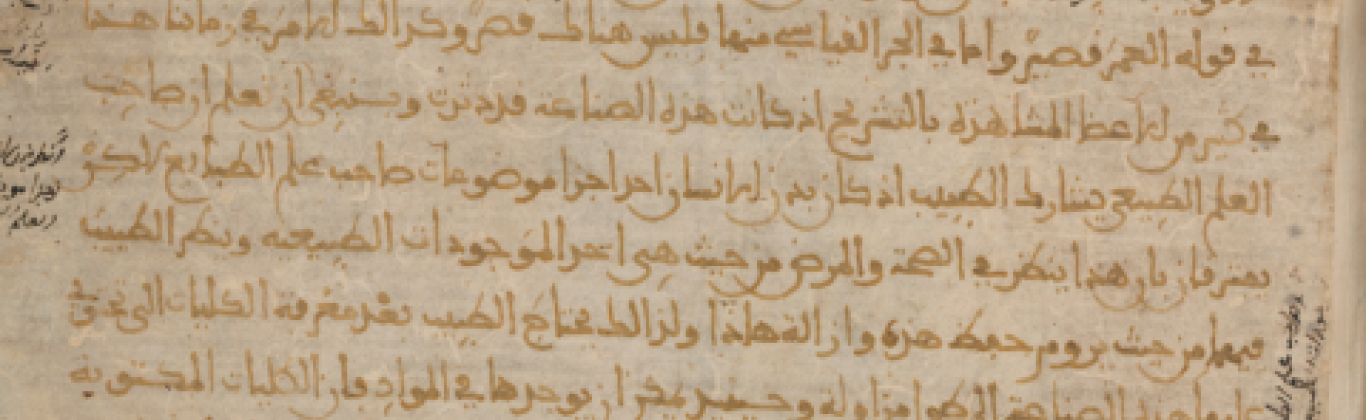 في قوله العمر قصير واما في الجزء القياسي منها فليس هناك قصر وكذلك الامر في زماننا هذا
في كثير من الاعضاء المشاهدة بالتشريح اذ كانت هذه الصناعة قد دثرت وينبغي ان تعلم ان صاحب
العلم الطبيعي يشارك الطبيب اذ كان بدن الانسان احد اجزا موضوعات صاحب علم الطبايع لاكن
يفترقان بان هذا ينظر في الصحة والمرض من حيث هي احد الموجودات الطبيعية وينظر الطبيب
فيهما من حيث يروم حفظ هذه وازالة هاذا ولذلك يحتاج الطبيب بعد معرفة الكليات التي تحتوي
الصناعة الى طول مزاولة وحينئذ يمكن ان يوجدها في المواد فان الكليات المكتوبة